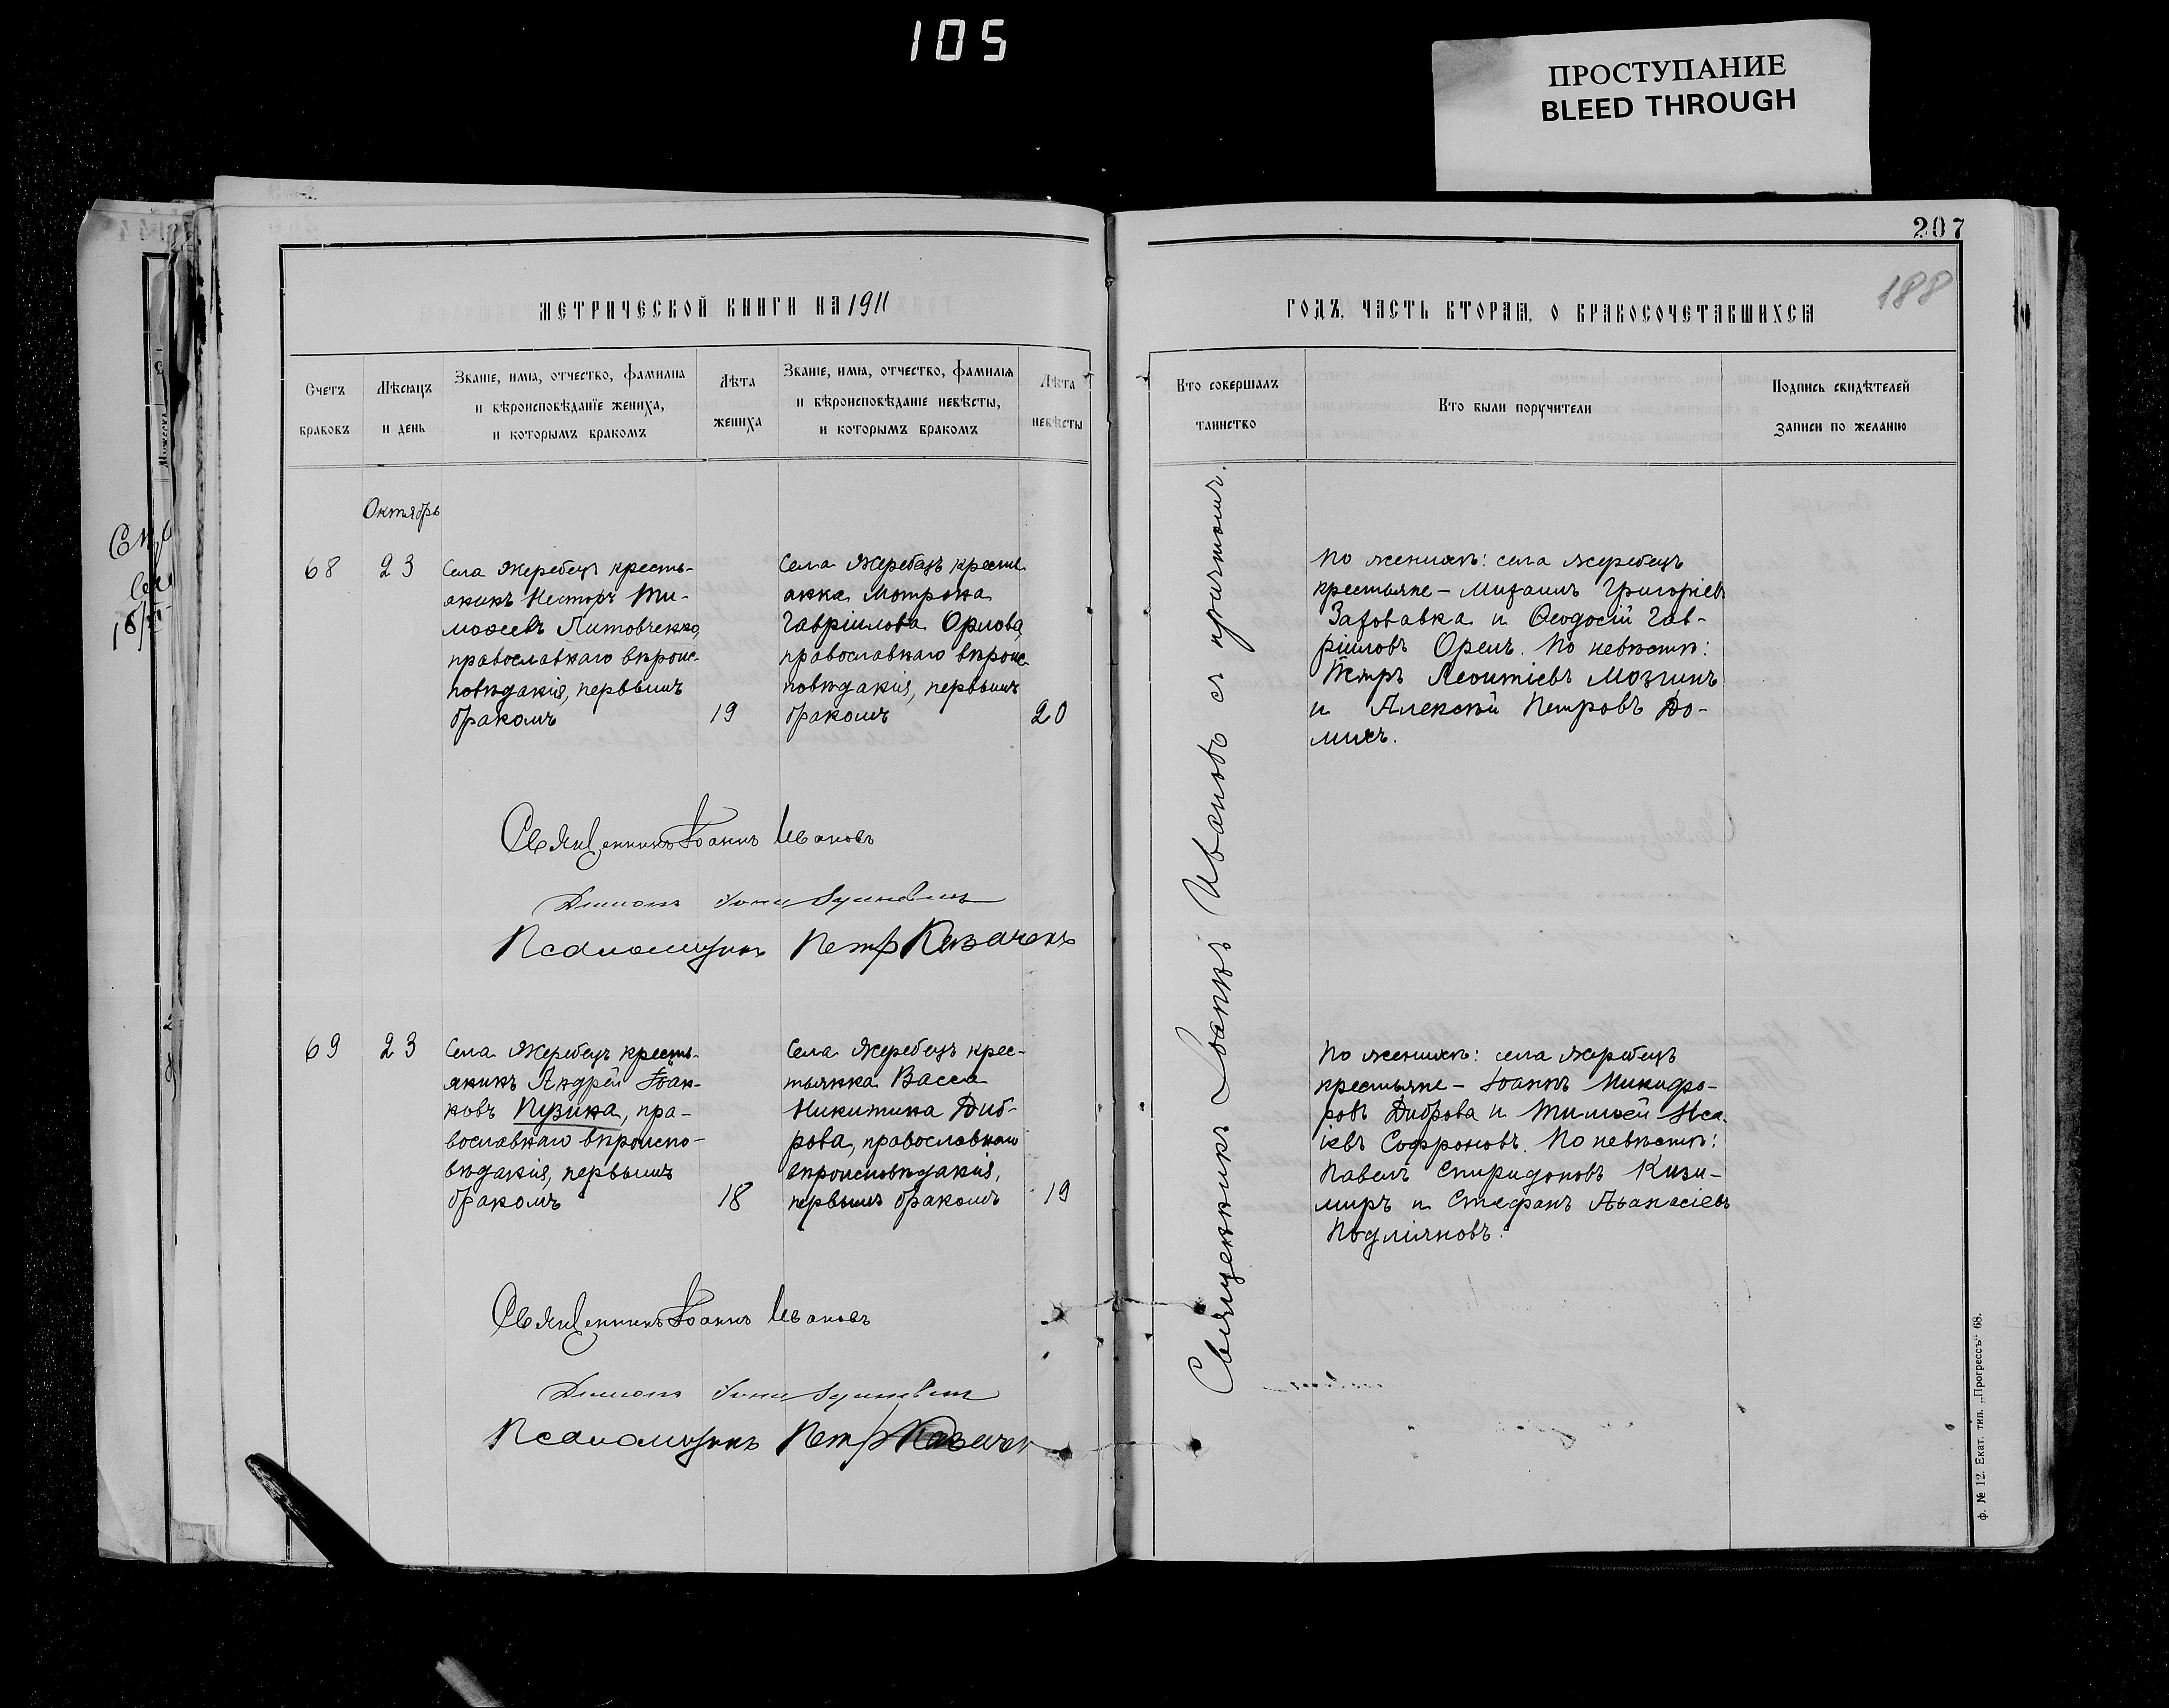 105
ПРОСТУПАНИЕ
BLEED THROUGH
207
188
МЕТРИЧЕСКОЙ КНИГИ НА 1911
ГОДЪ, ЧАСТЬ ВТОРАЯ, О БРАКОСОЧЕТАВШИХСЯ
Счетъ браковъ
Мѣсяцъ и день
Званіе, имя, отчество, фамилія
и вѣроисповѣданїе жениха,
и которымъ бракомъ
Лѣта жениха
Званіе, имя, отчество, фамилія
и вѣроисповѣданіе невѣсты,
и которымъ бракомъ
Лѣта невѣсты
Кто совершалъ таинство
Кто были поручители
Подпись свидѣтелей
записи по желанію
Октябрь
68
23
Села Жеребецъ кресть-
янинъ Несторъ Ти-
моѳеевъ Литовченко,
православнаго вѣроис-
повѣданія, первымъ
бракомъ
19
Села Жеребецъ кресть
янка Мотрона
Гавріилова Орлова,
православнаго вѣроис-
повѣданія, первымъ
бракомъ
20
Священникъ Іоаннъ Ивановъ съ причтомъ.
По женихѣ: села Жеребецъ
крестьяне – Михаилъ Григоріевъ
и Ѳеодосій Гав-
ріиловъ Орелъ. По невѣстѣ:
Петръ Леонтіевъ Мозгинъ
и Алексѣй Петровъ До-
мичъ.
Священникъ Іоаннъ Ивановъ
Псаломщикъ Петр Казаченъ
69
23
Села Жеребецъ кресть-
янинъ Андрей Іоан-
новъ Пузика, пра-
вославнаго вѣроиспо-
вѣданія, первымъ
бракомъ
18
Села Жеребецъ крес-
тьянка Васса
Никитина Диб-
рова, православнаго
вѣроисповѣданія,
первымъ бракомъ
19
По женихѣ: села Жеребецъ
крестьяне – Іоаннъ Никифо-
ровъ Диброва и Тимоѳей Иса-
іевъ Софроновъ. По невѣстѣ:
Павелъ Спиридоновъ Кизи-
миръ и Стефанъ Аѳанасіевъ
Священникъ Іоаннъ Ивановъ
Псаломщикъ Петр Казачен
Ф. № 12. Екат. тип. „Прогрессъ“ 68.